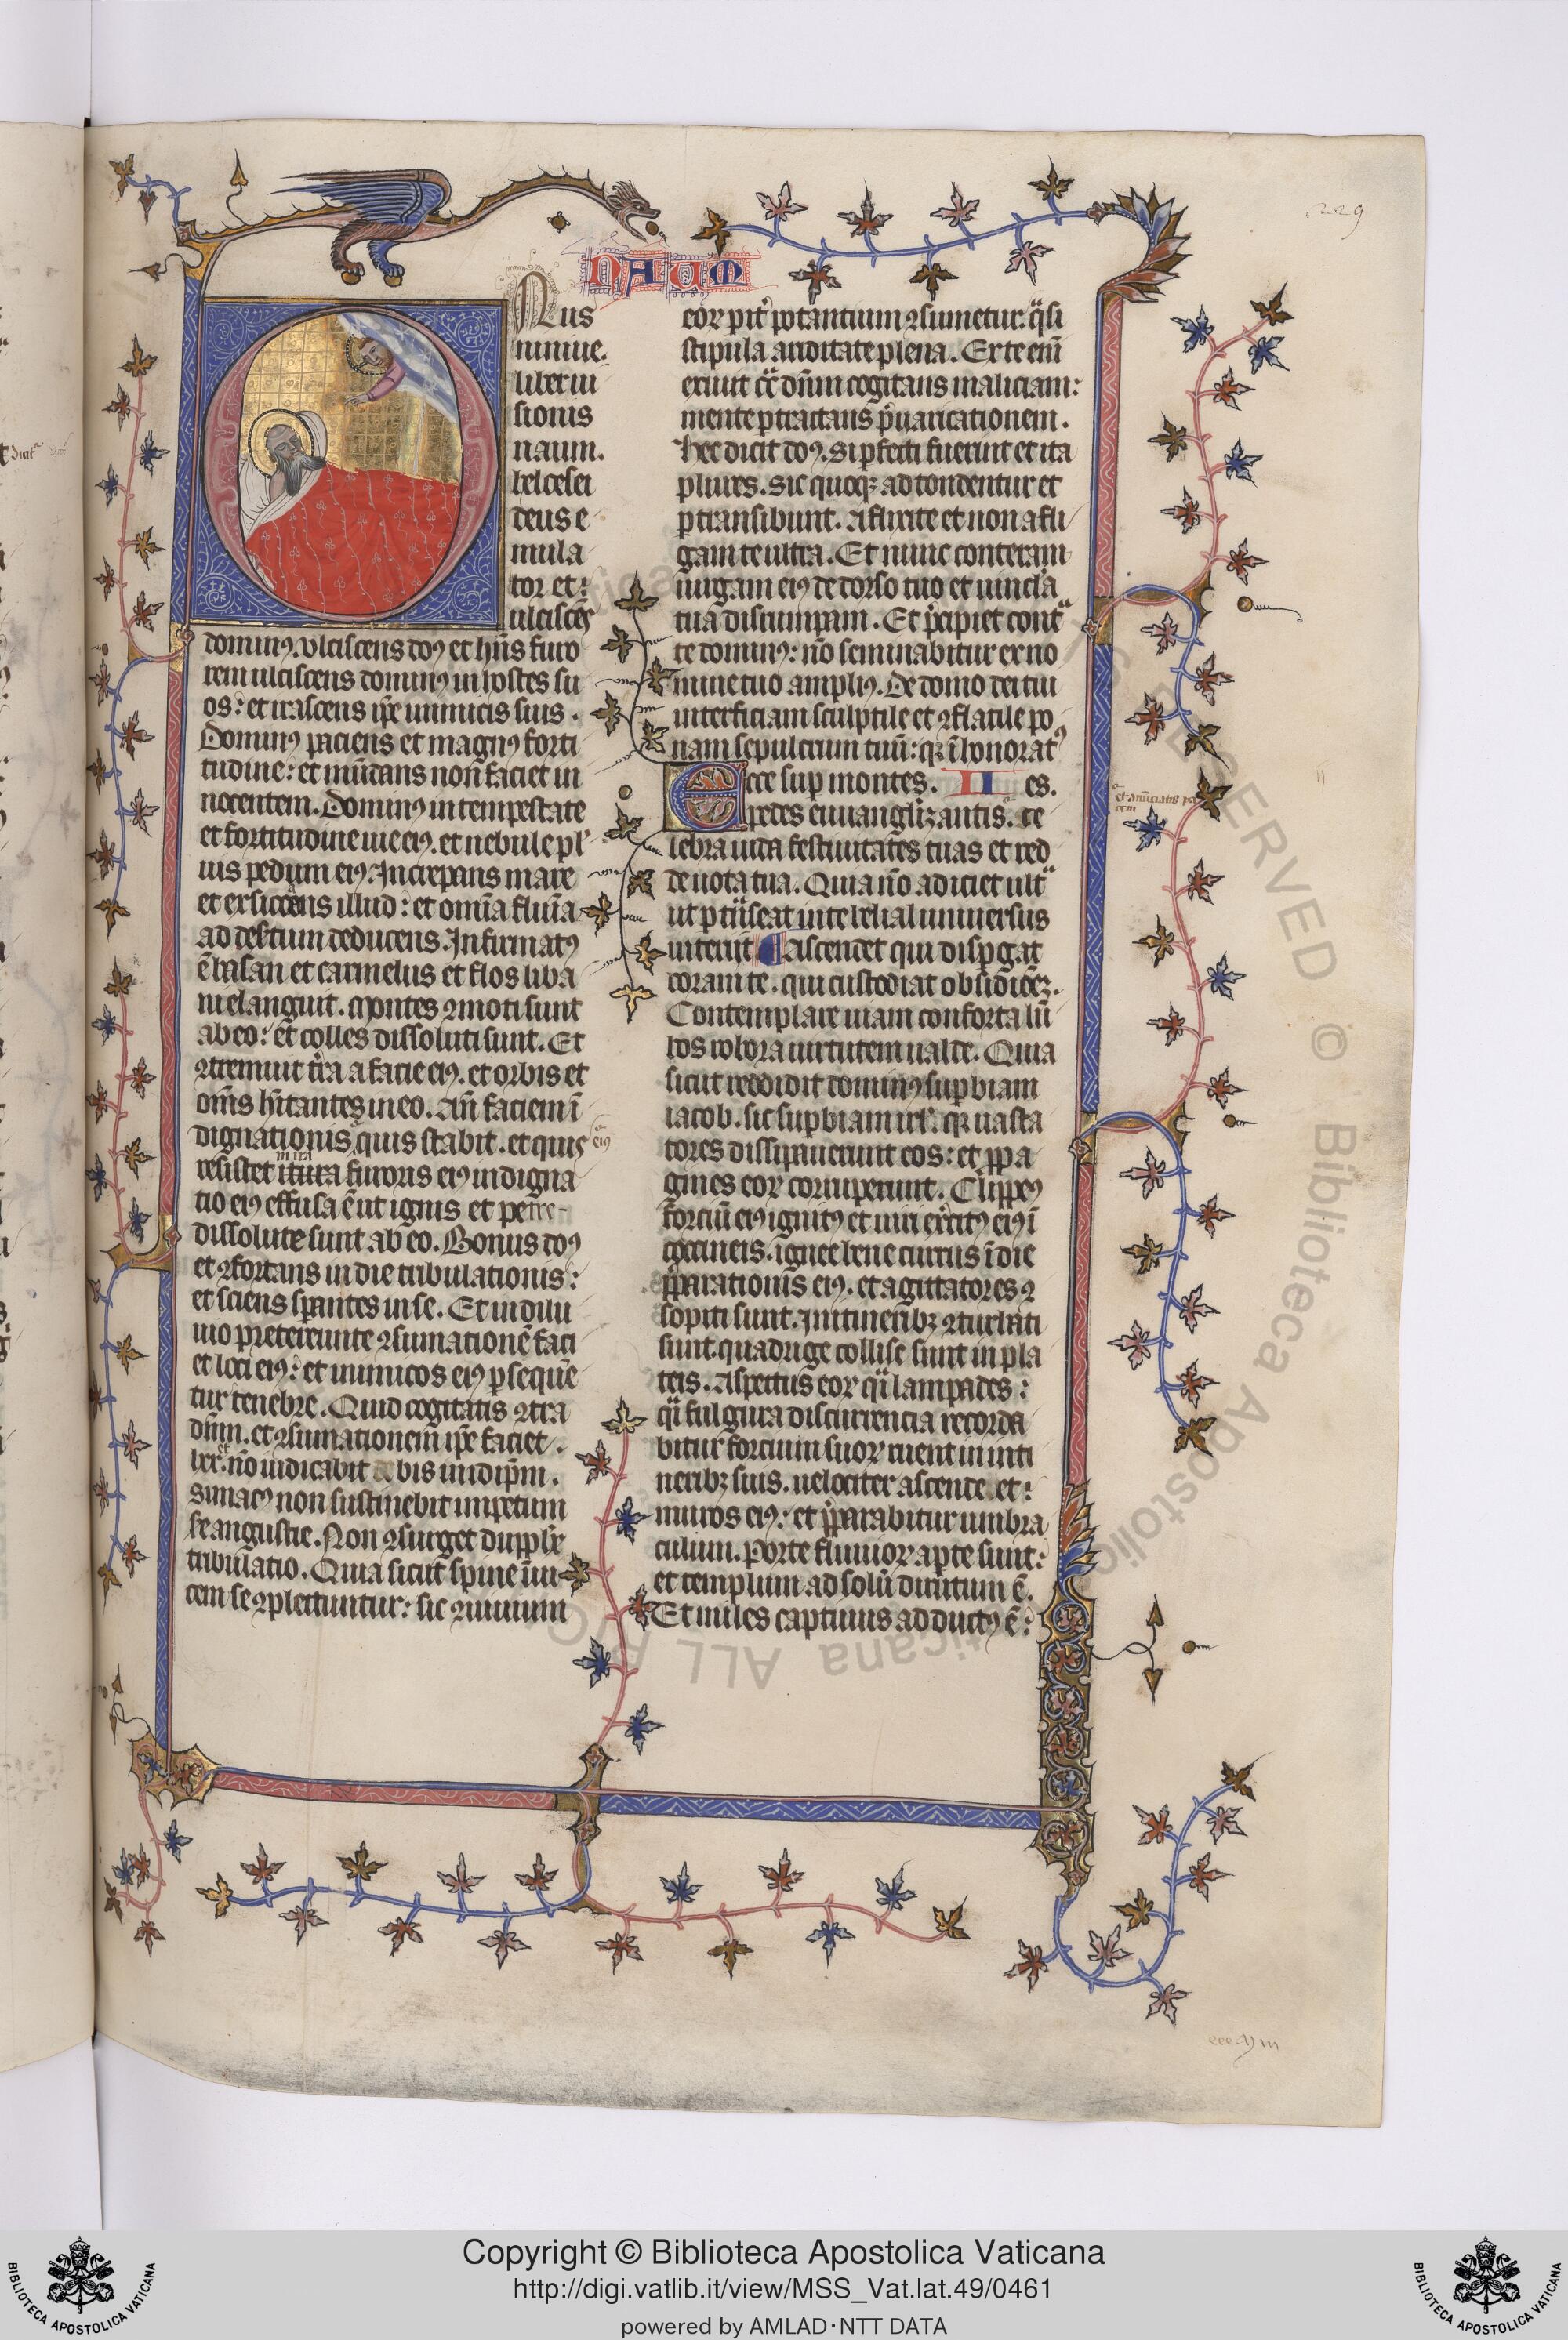 229
NAUM
Nus
niniue.
liber ui
sionis
naum.
helcesei
deus e
mula
tor et:
ulcisce̅s
dominꝰ. Ulciscens doꝰ et hn̅s furo
rem ulciscens dominꝰ in hostes su
os: et irascens ip̅e inimicis suis.
Dominꝰ paciens et magnꝰ forti
tudine: et mu̅dans non faciet in
nocentem. Dominꝰ in tempestate
et fortitudine uie eiꝰ. et nebule pl
uis pedum eiꝰ. Increpans mare
et exsiccans illud: et omn̅ia flui̅a
ad desertum deducens. Infirmatꝰ
e̅ basan et carmelus et flos liba
ni elanguit. Montes ꝯmoti sunt
ab eo: et colles dissoluti sunt. Et
ꝯtremuit t̅ra a facie eiꝰ. et orbis et
om̅s hi̅tantes in eo. An̅ faciem i̅
dignationis quis stabit. et quis
eiꝰ
resistet in ira furoris eiꝰ indigna
tio eiꝰ effusa e̅ ut ignis et petre
dissolute sunt ab eo. Bonus doꝰ
et ꝯfortans in die tribulationis:
et sciens sp̅antes in se. Et in dilu
uio pretereunte ꝯsumatione̅ faci
et loci eiꝰ: et inimicos eiꝰ ꝑseque̅
tur tenebre. Quid cogitatis ꝯtra
dn̅m. et ꝯsumationem ip̅e faciet.
no̅ iudicabit bis in idip̅m.
non sustinebit impetum
angustie. Non ꝯsurget dupplex
tribulatio. Quia sicut spine i̅ui
cem se ꝯplectuntur: sic ꝯuiuium
eoꝝ parit̾ potantium ꝯsumetur. q̈si
stipula ariditate plena. Ex te eni̅
exiuit dn̅m cogitans maliciam:
mente ꝑtractans p̾uaricationem.
Hec dicit doꝰ. Si ꝑfecti fuerint et ita
plures. sic quoqꝫ adtondentur et
ꝑtransibunt. Aflixite et non afli
gam te ultra. Et nunc conteram
uirgam eiꝰ de dorso tuo et uincla
tua disrumpam. Et p̾cipiet cont̾
te dominꝰ: no̅ seminabitur ex no
mine tuo ampliꝰ. De domo dei tui
interficiam sculptile et ꝯflatile po
nam sepulcrum tuu̅: qꝫ i̅honoratꝰ
Ecce suꝑ montes. II es.
pedes euuangelizantis. ce
et an̅unciatis pa
cem
lebra iuda festiuitates tuas et red
de uota tua. Quia no̅ adiciet ult̾
ut ꝑtra̅seat in te belial uniuersus
interijt. Ascendet qui disꝑgat
coram te. qui custodiat obsidio̅eꝫ.
Contemplare uiam conforta lu̅
bos robora uirtutem ualde. Quia
sicut reddidit dominꝰ suꝑbiam
iacob. sic suꝑbiam isrl. qꝛ uasta
tores dissipauerunt eos: et ppa
gines eoꝝ corruperunt. Clippeꝰ
forciu̅ eiꝰ ignitꝰ et uiri ex̾citꝰ eiꝰ i̅
coccineis. ignee bene currus i̅ die
p̾parationis eiꝰ. et agittatores ꝯ
sopiti sunt. In itineribꝫ ꝯturbati
sunt. quadrige collise sunt in pla
teis. Aspectus eoꝝ q̈i lampades:
q̈i fulgura discurrencia recorda
bitur forcium suoꝝ ruent in iti
neribꝫ suis. uelociter ascende. et:
muros eiꝰ: et p̾parabitur umbra
culum. Porte fluuioꝝ aꝑte sunt:
et templum ad solu̅ dirutum e̅.
Et miles captiuus adductꝰ e̅:
Copyright © Biblioteca Apostolica Vaticana
http://digi.vatlib.it/view/MSS_Vat.lat.49/0461
powered by AMLAD·NTT DATA
BIBLIOTECA APOSTOLICA VATICANA
BIBLIOTECA APOSTOLICA VATICANA